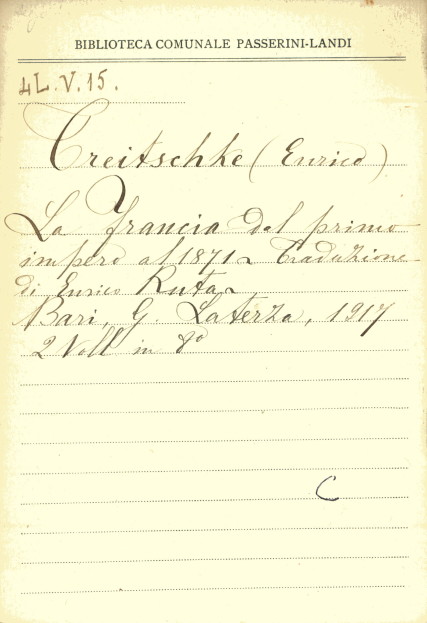 BIBLIOTECA COMUNALE PASSERINI-LANDI
4L.V.15.
Treitschke (Enrico)
La Francia dal primo
impero al 1871 ~ Traduzione
di Enrico Ruta ~
Bari, G. Laterza, 1917
2 Voll in 8º
C